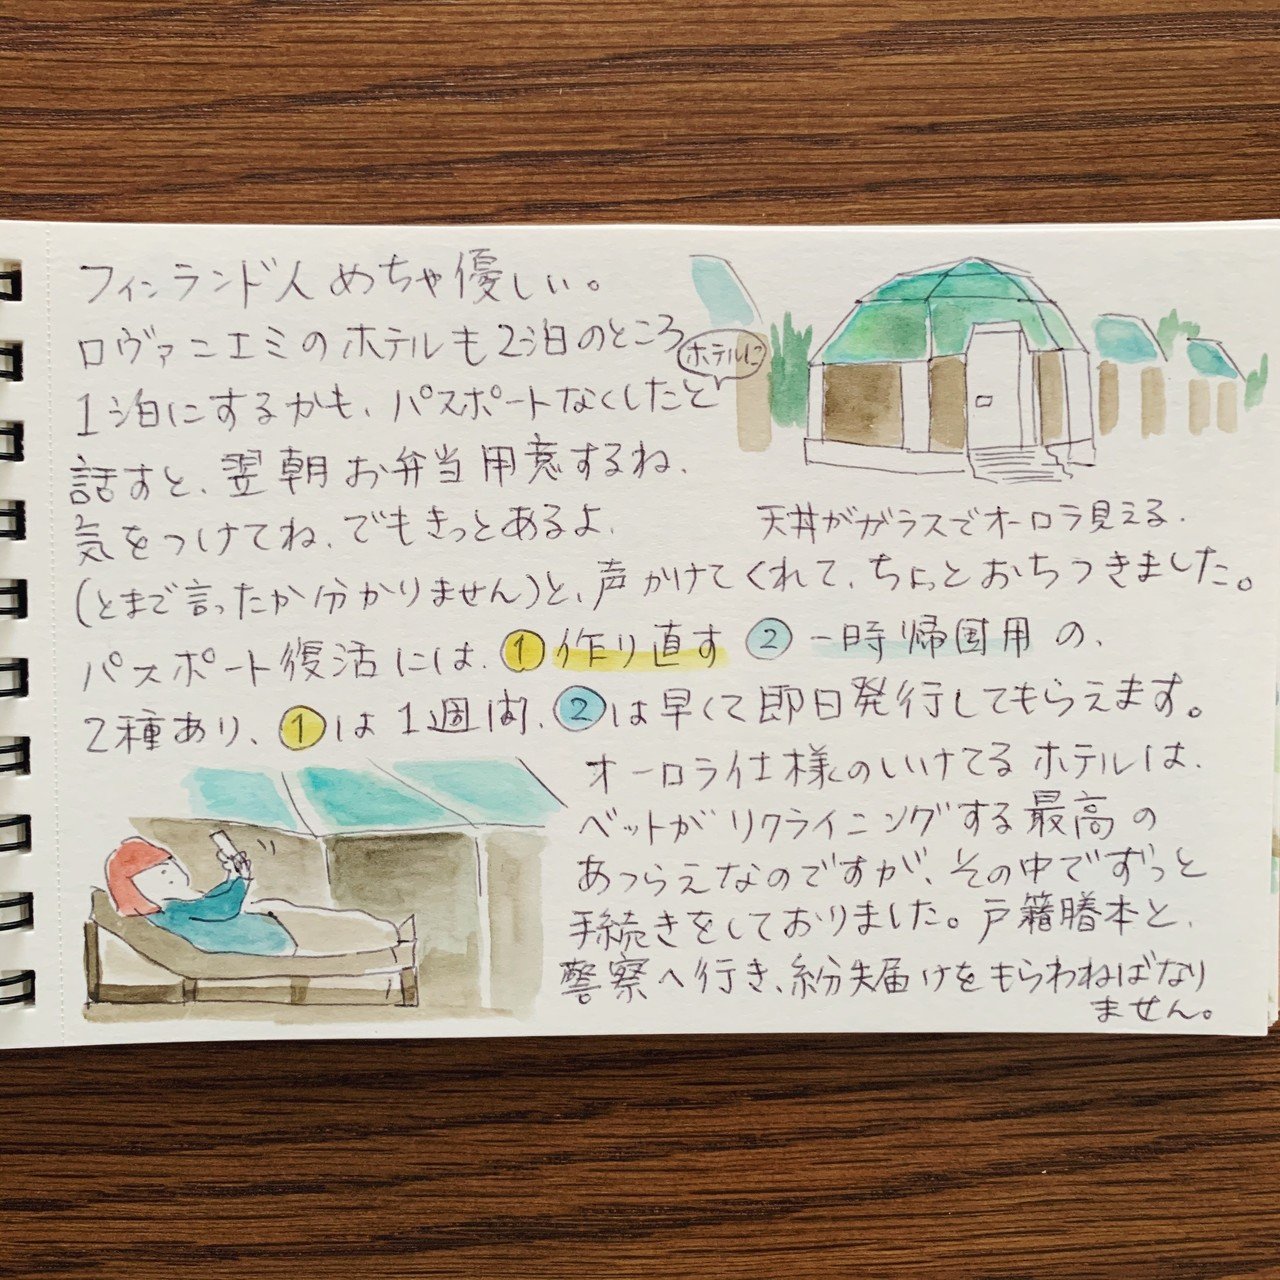 フィンランド人めちゃ優しい。
ロヴァニエミのホテルも2泊のところ
ホテルに
1泊にするかも、パスポートなくしたと
話すと、翌朝お弁当用意するね、
気をつけてね、でもきっとあるよ、
天井がガラスでオーロラ見える。
(とまで言ったか分かりません)と、声かけてくれて、ちょっとおちつきました。
パスポート復活には、①作り直す ②一時帰国用の、
2種あり、①は1週間、②は早くて即日発行してもらえます。
オーロラ仕様のいけてるホテルは、
ベットがリクライニングする最高の
あつらえなのですが、その中でずっと
手続きをしておりました。戸籍謄本と、
警察へ行き、紛失届けをもらわねばなり
ません。